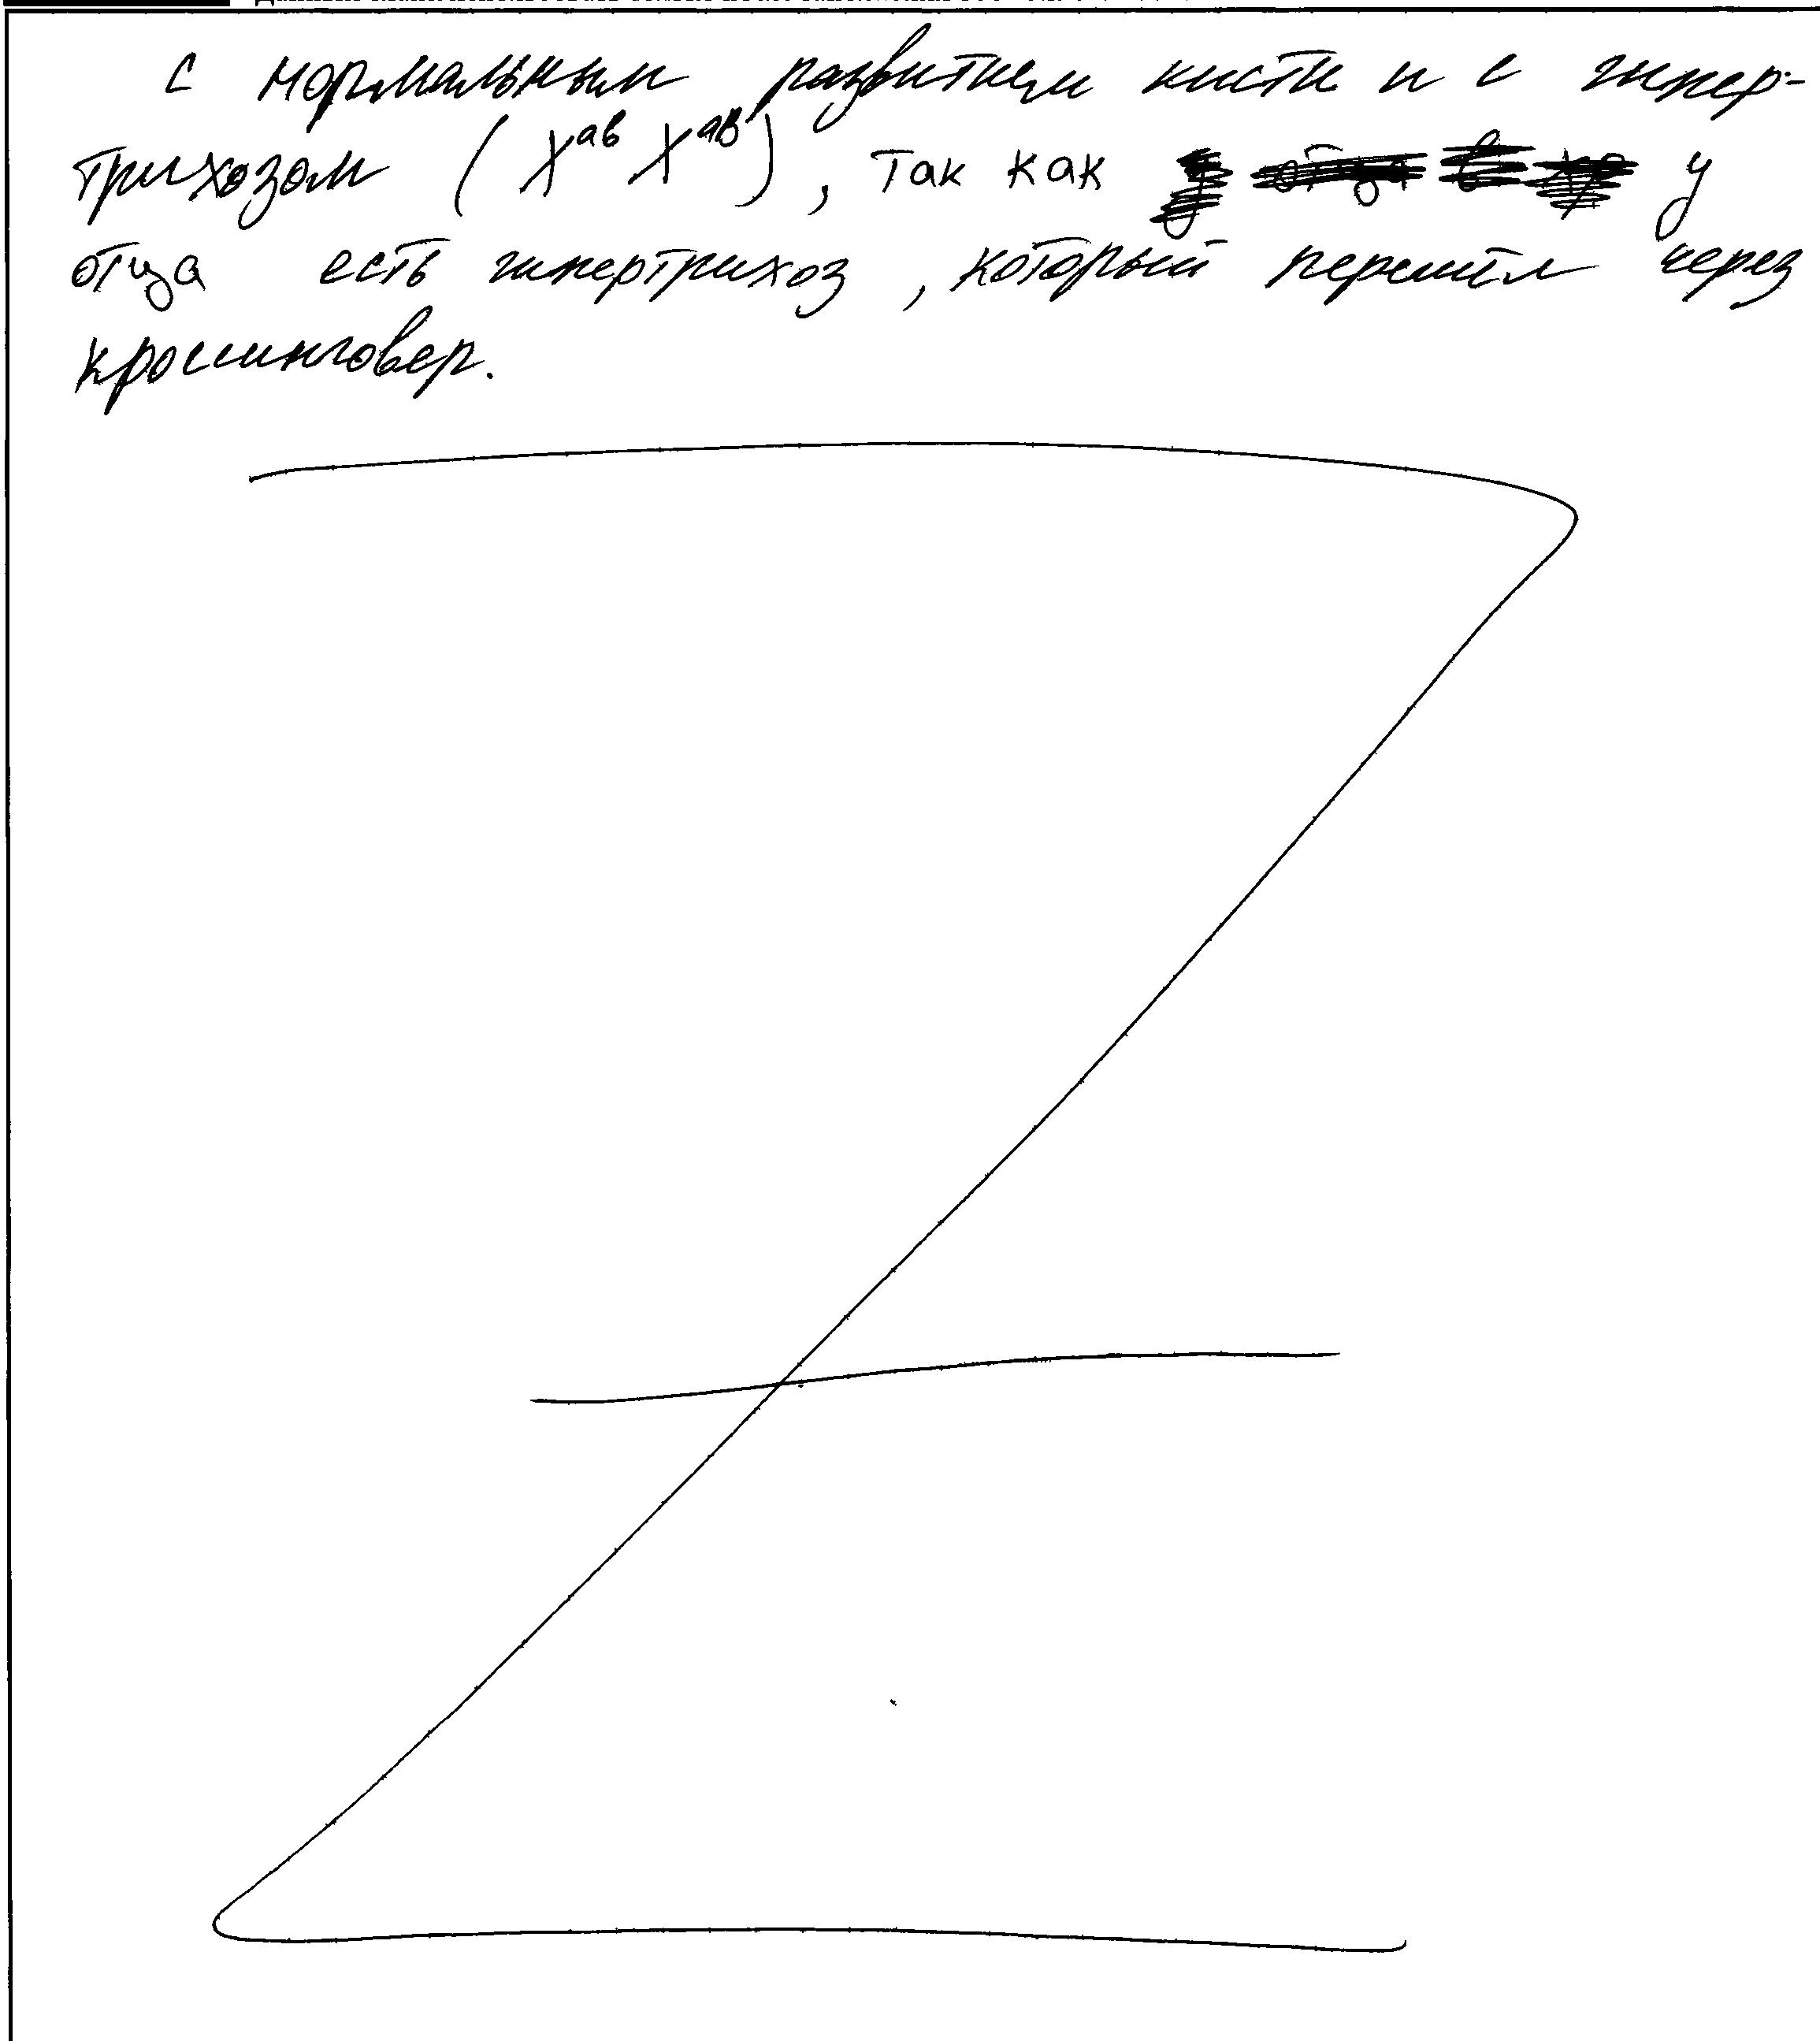 с нормальным развитием кисти и с гипер-
трихозом (X^ав X^ав), так как у
отца есть гипертрихоз, который перешёл через
кроссинговер.